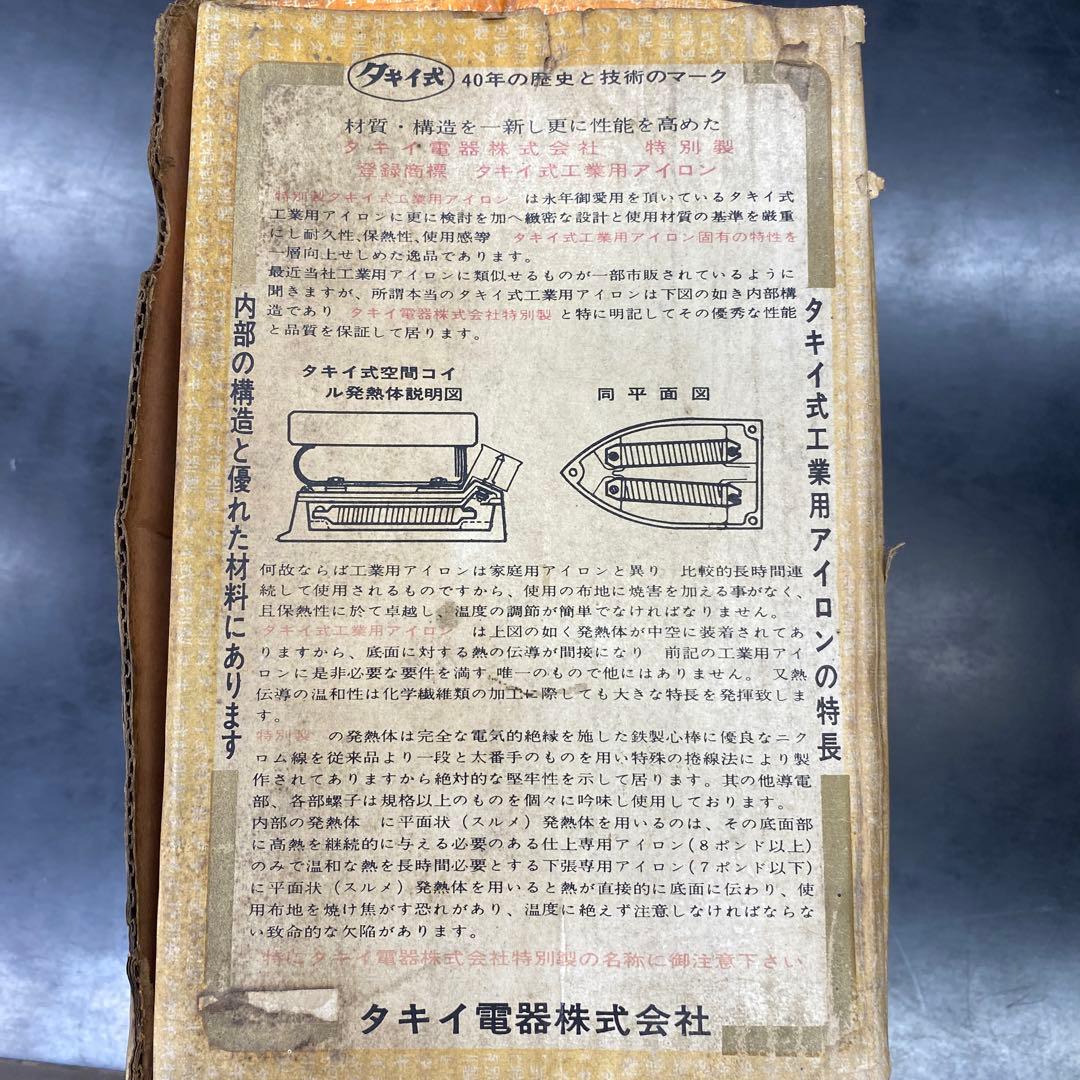 タキイ式 40年の歴史と技術のマーク
材質・構造を一新し更に性能を高めた
タキイ電器株式会社 特別製
登録商標 タキイ式工業用アイロン
特別製タキイ式工業用アイロン は永年御愛用を頂いているタキイ式
工業用アイロンに更に検討を加へ緻密な設計と使用材質の基準を厳重
にし耐久性、保熱性、使用感等 タキイ式工業用アイロン固有の特性を
一層向上せしめた逸品であります。
最近当社工業用アイロンに類似せるものが一部市販されているように
聞きますが、所謂本当のタキイ式工業用アイロンは下図の如き内部構
造であり タキイ電器株式会社特別製 と特に明記してその優秀な性能
と品質を保証して居ります。
タキイ式工業用アイロンの特長
内部の構造と優れた材料にあります
タキイ式空間コイ
ル発熱体説明図
同平面図
何故ならば工業用アイロンは家庭用アイロンと異り 比較的長時間連
続して使用されるものですから、使用の布地に焼害を加える事がなく、
且保熱性に於て卓越し、温度の調節が簡単でなければなりません。
タキイ式工業用アイロン は上図の如く発熱体が中空に装着されてあ
りますから、底面に対する熱の伝導が間接になり 前記の工業用アイ
ロンに是非必要な要件を満す唯一のもので他にはありません。又熱
伝導の温和性は化学繊維類の加工に際しても大きな特長を発揮致しま
す。
特別製 の発熱体は完全な電気的絶縁を施した鉄製心棒に優良なニク
ロム線を従来品より一段と太番手のものを用い特殊の捲線法により製
作されてありますから絶対的な堅牢性を示して居ります。其の他導電
部、各部螺子は規格以上のものを個々に吟味し使用しております。
内部の発熱体 に平面状(スルメ)発熱体を用いるのは、その底面部
に高熱を継続的に与える必要のある仕上専用アイロン(8ポンド以上)
のみで温和な熱を長時間必要とする下張専用アイロン(7ポンド以下)
に平面状(スルメ)発熱体を用いると熱が直接的に底面に伝わり、使
用布地を焼け焦がす恐れがあり、温度に絶えず注意しなければならな
い致命的な欠陥があります。
特にタキイ電器株式会社特別製の名称に御注意下さい
タキイ電器株式会社